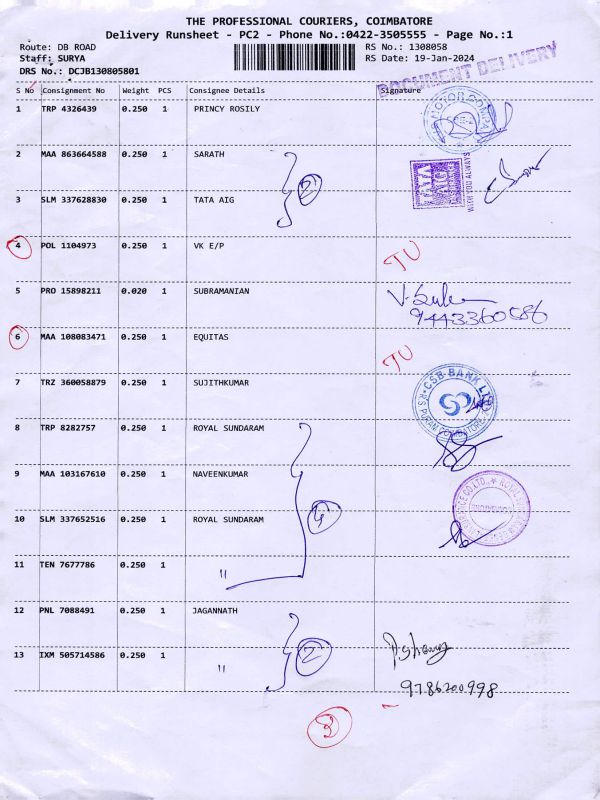 THE PROFESSIONAL COURIERS, COIMBATORE
Delivery Runsheet - PC2 - Phone No.:0422-3505555 - Page No.:1
Route: DB ROAD RS No.: 1308058
Staff: SURYA RS Date: 19-Jan-2024
DRS No.: DCJB130805801
DOCUMENT DELIVERY
S No Consignment No Weight PCS Consignee Details Signature
1 TRP 4326439 0.250 1 PRINCY ROSILY
2 MAA 863664588 0.250 1 SARATH
TATA AIG
WITH YOU ALWAYS
2
3 SLM 337628830 0.250 1 TATA AIG
4 POL 1104973 0.250 1 VK E/P
5 PRO 15898211 0.020 1 SUBRAMANIAN
9443360586
6 MAA 108083471 0.250 1 EQUITAS
7 TRZ 360058879 0.250 1 SUJITHKUMAR
CSB BANK LTD
R.S. PURAM COIMBATORE
8 TRP 8282757 0.250 1 ROYAL SUNDARAM
9 MAA 103167610 0.250 1 NAVEENKUMAR
4
10 SLM 337652516 0.250 1 ROYAL SUNDARAM
11 TEN 7677786 0.250 1 "
12 PNL 7088491 0.250 1 JAGANNATH
2
13 IXM 505714586 0.250 1 "
9786200998